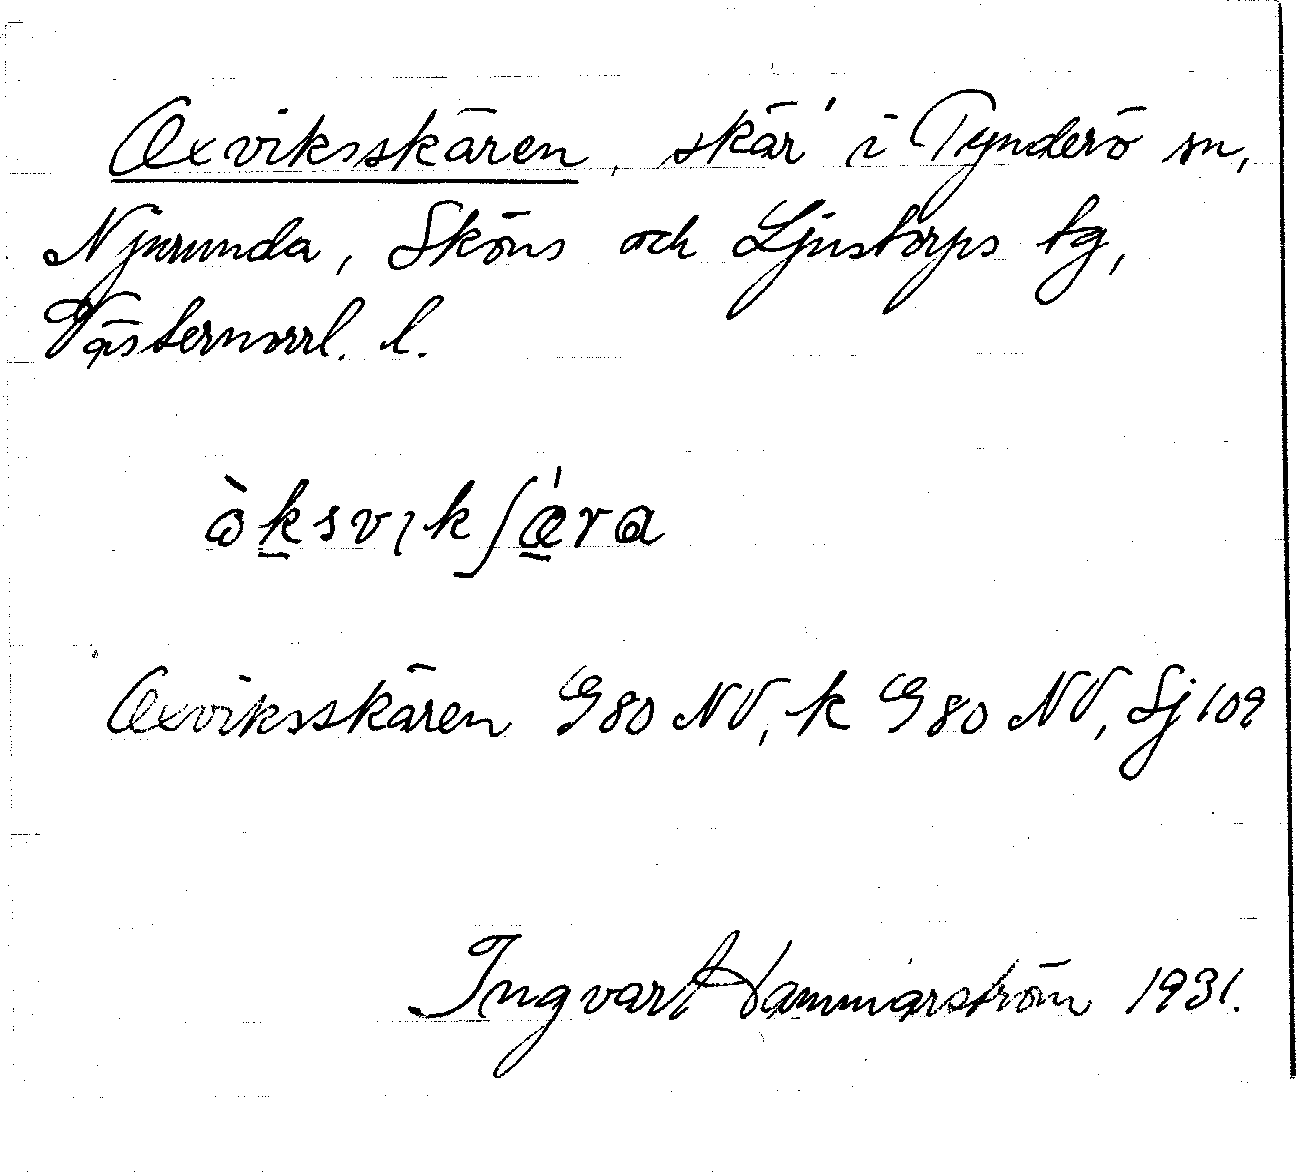 Oxviksskären, skär i Tynderö sn,
Njurunda, Sköns och Ljustorps tg,
Västernorrl. l.
ὼksvıkʃæ̀ra
Oxviksskären G80 NV, k G80 NV, Sj 109
Ingvart Hammarström 1931.